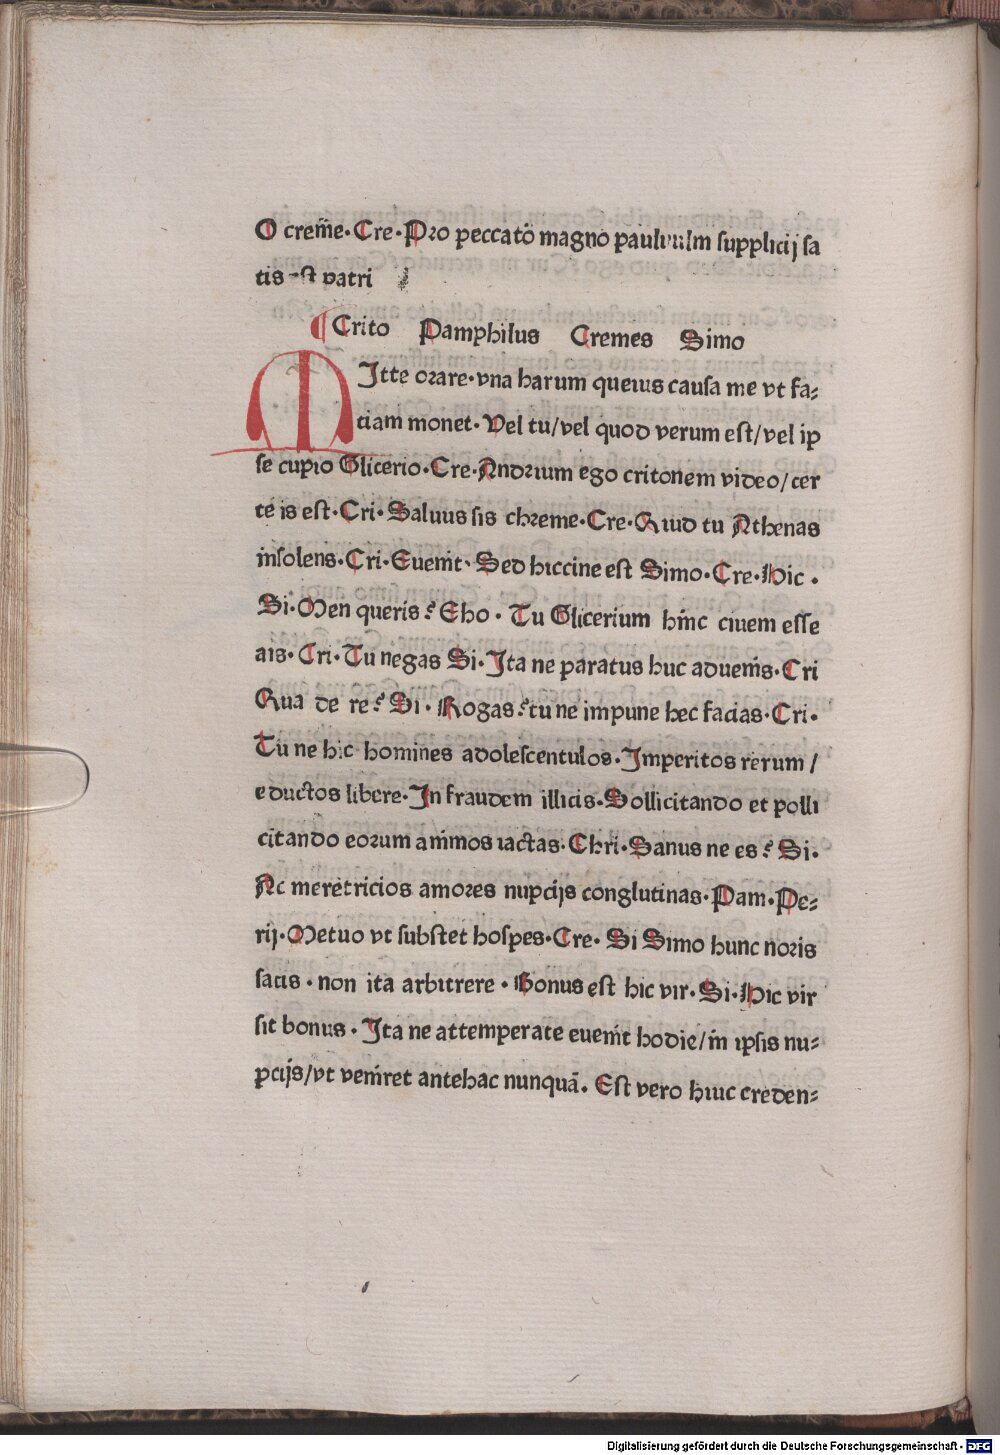 O crem̄e·Cre·Pro peccato magno paululm supplicij sa
tis est patri
¶ Crito Pamphilus Cremes Simo
MItte orare·vna harum queius causa me vt fa⸗
ciam monet·Vel tu/vel quod verum est/vel ip
se cupio Glicerio·Cre·Andrium ego critonem video/cer
te is est·Cri·Saluus sis chreme·Cre·Quid tu Athenas
insolens·Cri·Euenit·Sed hiccine est Simo·Cre·Hic·
Si·Men queris? Eho·Tu Glicerium hinc ciuem esse
ais·Cri·Tu negas Si·Ita ne paratus huc aduenis·Cri
Qua de re? Si·Rogas? tu ne impune hec facias·Cri·
Tu ne hic homines adolescentulos·Imperitos rerum/
eductos libere·In fraudem illicis·Sollicitando et polli
citando eorum animos iactas·Chri·Sanus ne es? Si·
Ac meretricios amores nupcijs conglutinas·Pam·Pe⸗
rij·Metuo vt substet hospes·Cre·Si Simo hunc noris
satis·non ita arbitrere·Bonus est hic vir·Si·Hic vir
sit bonus·Ita ne attemperate euenit hodie/in ipsis nu⸗
pcijs/vt veniret antehac nunquā·Est vero huic creden⸗
Digitalisierung gefördert durch die Deutsche Forschungsgemeinschaft - DFG